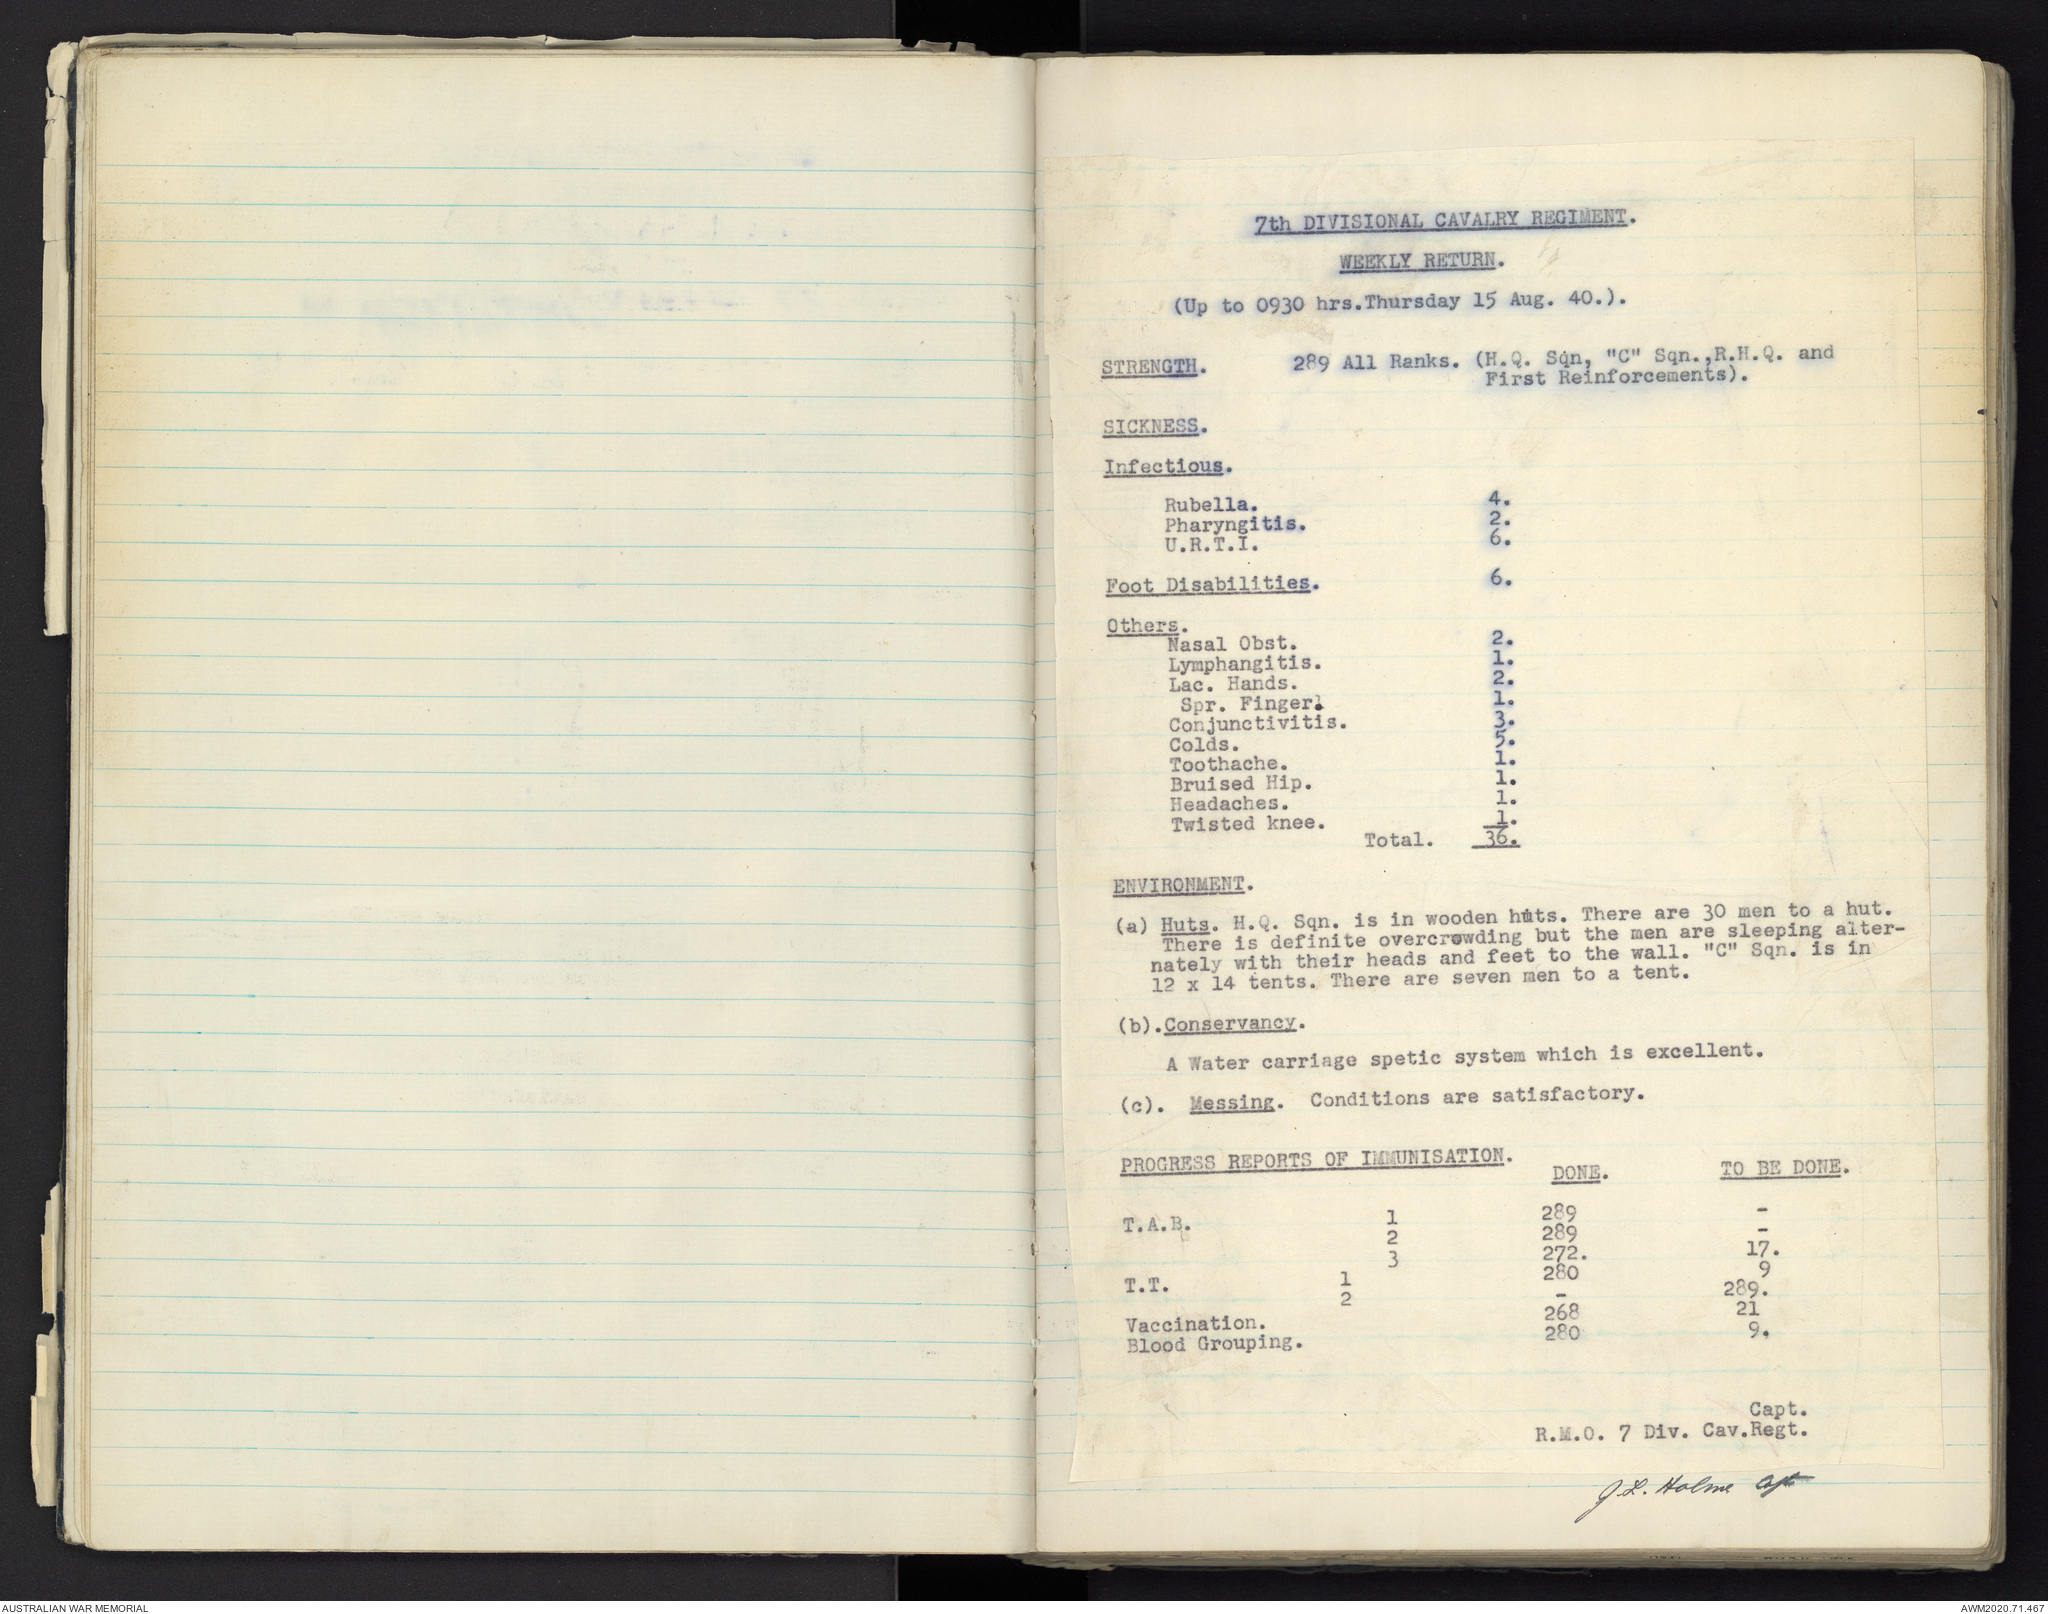 7th DIVISIONAL CAVALRY REGIMENT.
WEEKLY RETURN.
(Up to 0930 hrs.Thursday 15 Aug. 40.).
STRENGTH. 289 All Ranks. (H.Q. Sqn, "C" Sqn.,R.H.Q. and
First Reinforcements).
SICKNESS.
Infectious.
Rubella. 4.
Pharyngitis. 2.
U.R.T.I. 6.
Foot Disabilities. 6.
Others.
Nasal Obst. 2.
Lymphangitis. 1.
Lac. Hands. 2.
Spr. Finger. 1.
Conjunctivitis. 3.
Colds. 5.
Toothache. 1.
Bruised Hip. 1.
Headaches. 1.
Twisted knee. 1.
Total. 36.
ENVIRONMENT.
(a) Huts. H.Q. Sqn. is in wooden huts. There are 30 men to a hut.
There is definite overcrowding but the men are sleeping alter-
nately with their heads and feet to the wall. "C" Sqn. is in
12 x 14 tents. There are seven men to a tent.
(b).Conservancy.
A Water carriage spetic system which is excellent.
(c). Messing. Conditions are satisfactory.
PROGRESS REPORTS OF IMMUNISATION.
DONE. TO BE DONE.
T.A.B. 1 289 -
2 289 -
3 272. 17.
T.T. 1 280 9
2 - 289.
Vaccination. 268 21
Blood Grouping. 280 9.
Capt.
R.M.O. 7 Div. Cav.Regt.
J L. Holme Capt
AUSTRALIAN WAR MEMORIAL
AWM2020.71.467